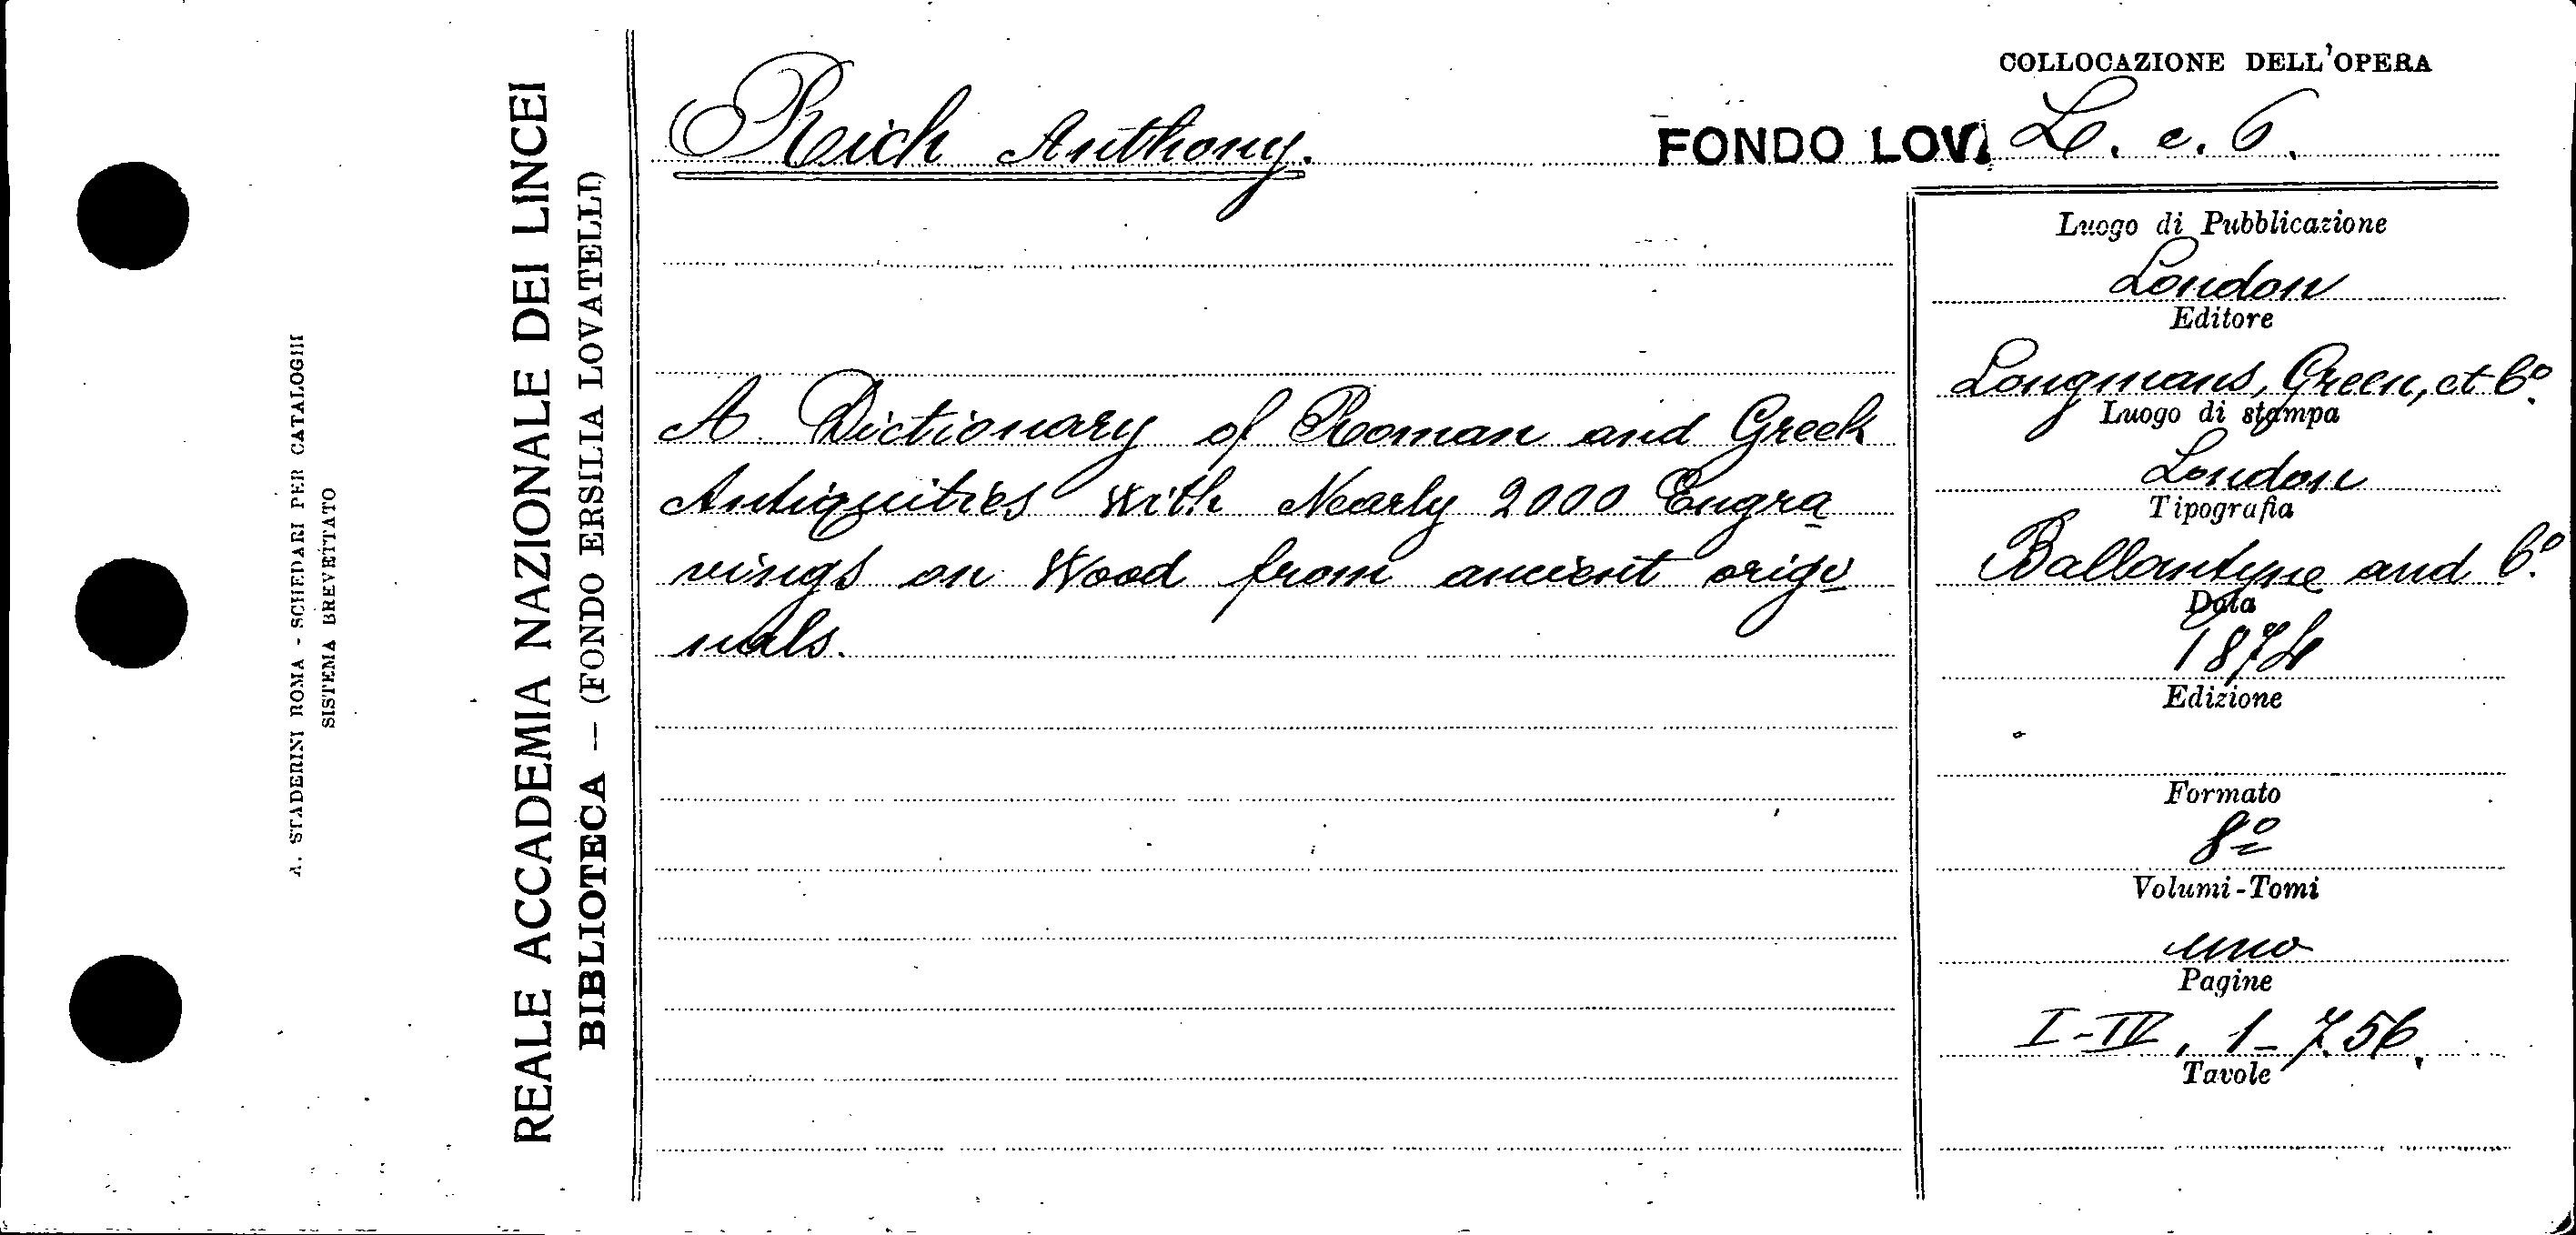 A. STADERINI ROMA - SCHEDARI PER CATALOGHI
SISTEMA BREVETTATO
REALE ACCADEMIA NAZIONALE DEI LINCEI
BIBLIOTECA — (FONDO ERSILIA LOVATELLI)
Rich Anthony.
A Dictionary of Roman and Greek
Antiquities With Nearly 2000 Engra
vings on Wood from ancient origi
nals.
COLLOCAZIONE DELL'OPERA
FONDO LOV. L. c. 6.
Luogo di Pubblicazione
London
Editore
Longmans, Green, et Cº.
Luogo di stampa
London
Tipografia
Ballantyne and Cº.
Data
1874
Edizione
Formato
8º
Volumi-Tomi
uno
Pagine
I-IV, 1-756.
Tavole